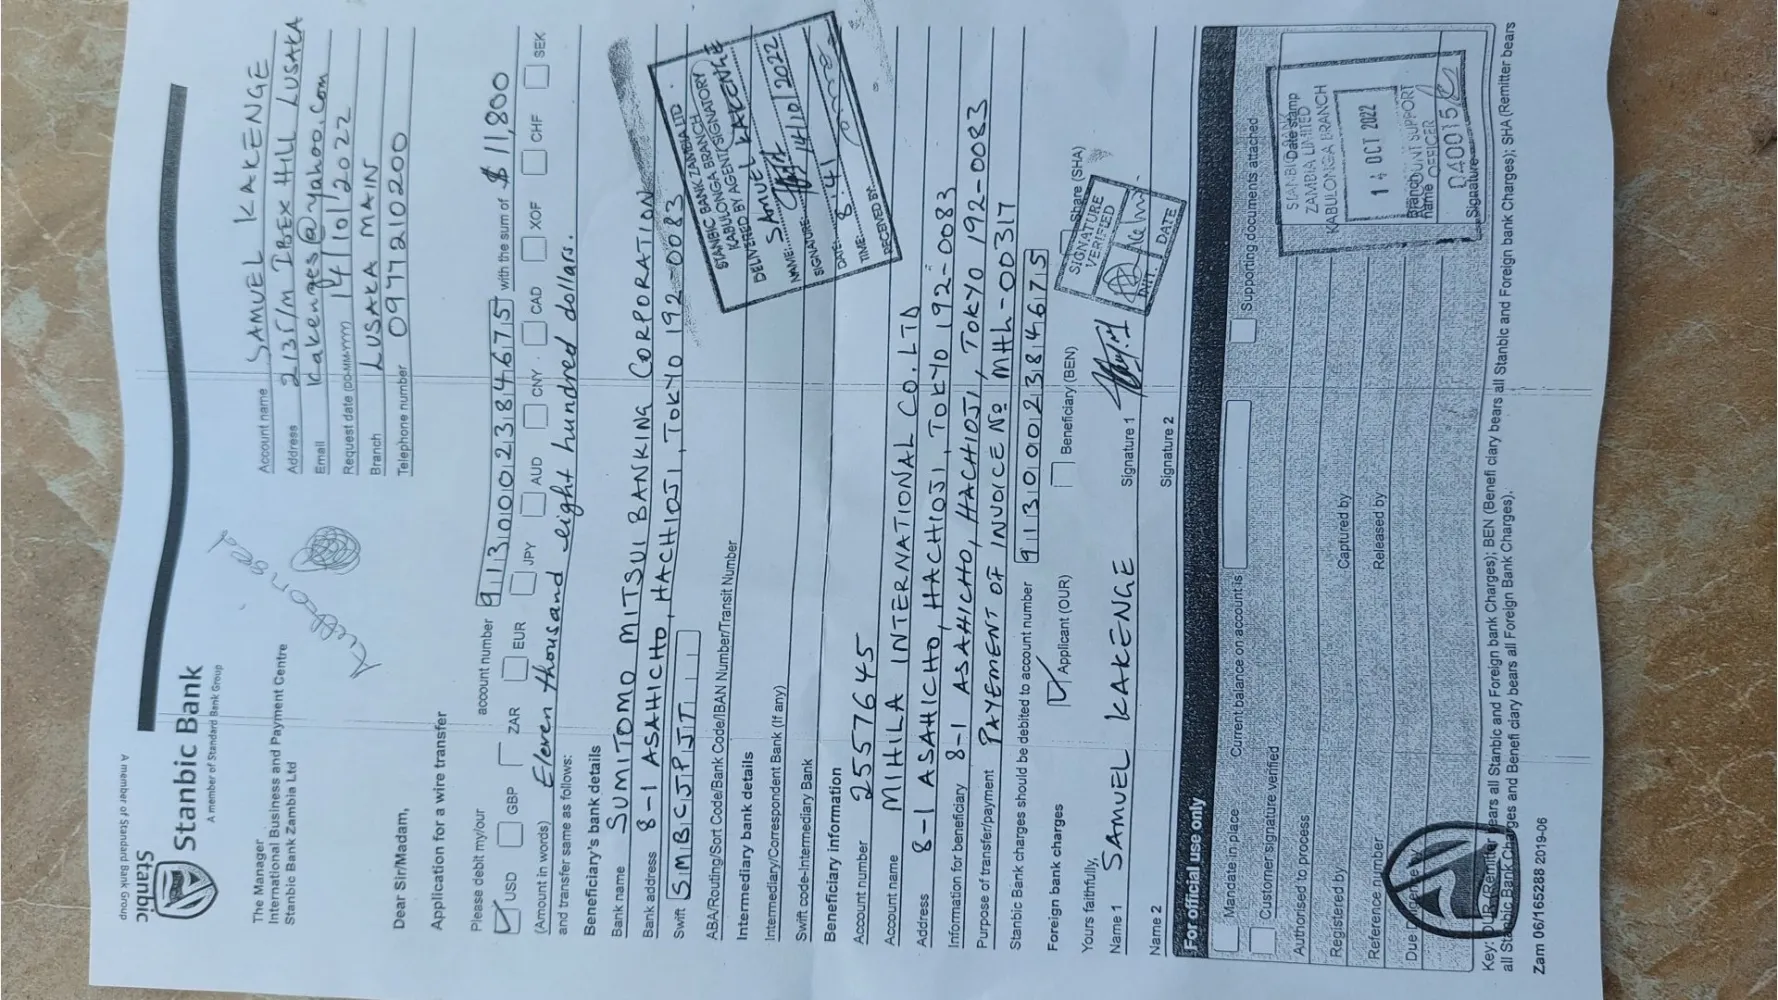 Stanbic
A member of Standard Bank Group
Stanbic Bank
A member of Standard Bank Group
The Manager
International Business and Payment Centre
Stanbic Bank Zambia Ltd
Account name SAMUEL KAKENGE
Address 2135/M IBEX HILL LUSAKA
Email Kakenges@yahoo.com
Request date (DD-MM-YYYY) 14/10/2022
Branch LUSAKA MAIN
Telephone number 0977210200
Dear Sir/Madam,
Application for a wire transfer
Please debit my/our account number 9130002384675 with the sum of $ 11,800
USD GBP ZAR EUR JPY AUD CNY CAD XOF CHF SEK
(Amount in words) Eleven thousand and eight hundred dollars.
and transfer same as follows:
Beneficiary's bank details
Bank name SUMITOMO MITSUI BANKING CORPORATION
Bank address 8-1 ASAHICHO, HACHIOJI, TOKYO 192-0083
Swift SMBCJPJT
ABA/Routing/Sort Code/Bank Code/IBAN Number/Transit Number
Intermediary bank details
Intermediary/Correspondent Bank (If any)
Swift code-Intermediary Bank
STANBIC BANK ZAMBIA LTD
KABULONGA BRANCH
DELIVERED BY AGENT/SIGNATORY
NAME: SAMUEL KAKENGE
SIGNATURE:
DATE: 14/10/2022
TIME: 8:41
RECEIVED BY:
Beneficiary information
Account number 2557645
Account name MIHILA INTERNATIONAL CO. LTD
Address 8-1 ASAHICHO, HACHIOJI, TOKYO 192-0083
Information for beneficiary 8-1 ASAHICHO, HACHIOJI, TOKYO 192-0083
Purpose of transfer/payment PAYEMENT OF INVOICE No MHh-00317
Stanbic Bank charges should be debited to account number 9130002384675
Foreign bank charges Applicant (OUR) Beneficiary (BEN) Share (SHA)
Yours faithfully,
Name 1 SAMUEL KAKENGE Signature 1
Name 2 Signature 2
SIGNATURE
VERIFIED
DATE
For official use only
Mandate in place Current balance on account is Supporting documents attached
Customer signature verified
Authorised to process
Registered by Captured by
Reference number Released by
Date stamp
ZAMBIA LIMITED
KABULONGA BRANCH
14 OCT 2022
ACCOUNT SUPPORT
OFFICER
Branch
name
Signature
Key: OUR (Remitter bears all Stanbic and Foreign bank Charges); BEN (Beneficiary bears all Stanbic and Foreign bank Charges); SHA (Remitter bears
all Stanbic Bank Charges and Beneficiary bears all Foreign Bank Charges).
Zam 06/165288 2019-06